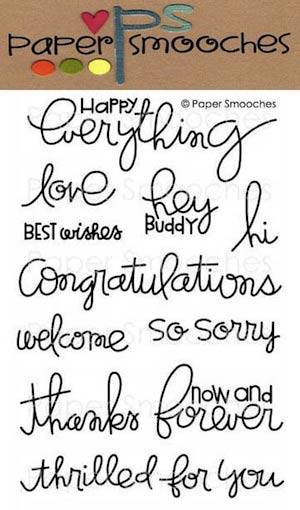 PS
paper smooches
© Paper Smooches
HaPPY
everything
love
hey
BUDDY
hi
BEST wishes
congratulations
welcome
so sorry
thanks
now and
forever
thrilled for you